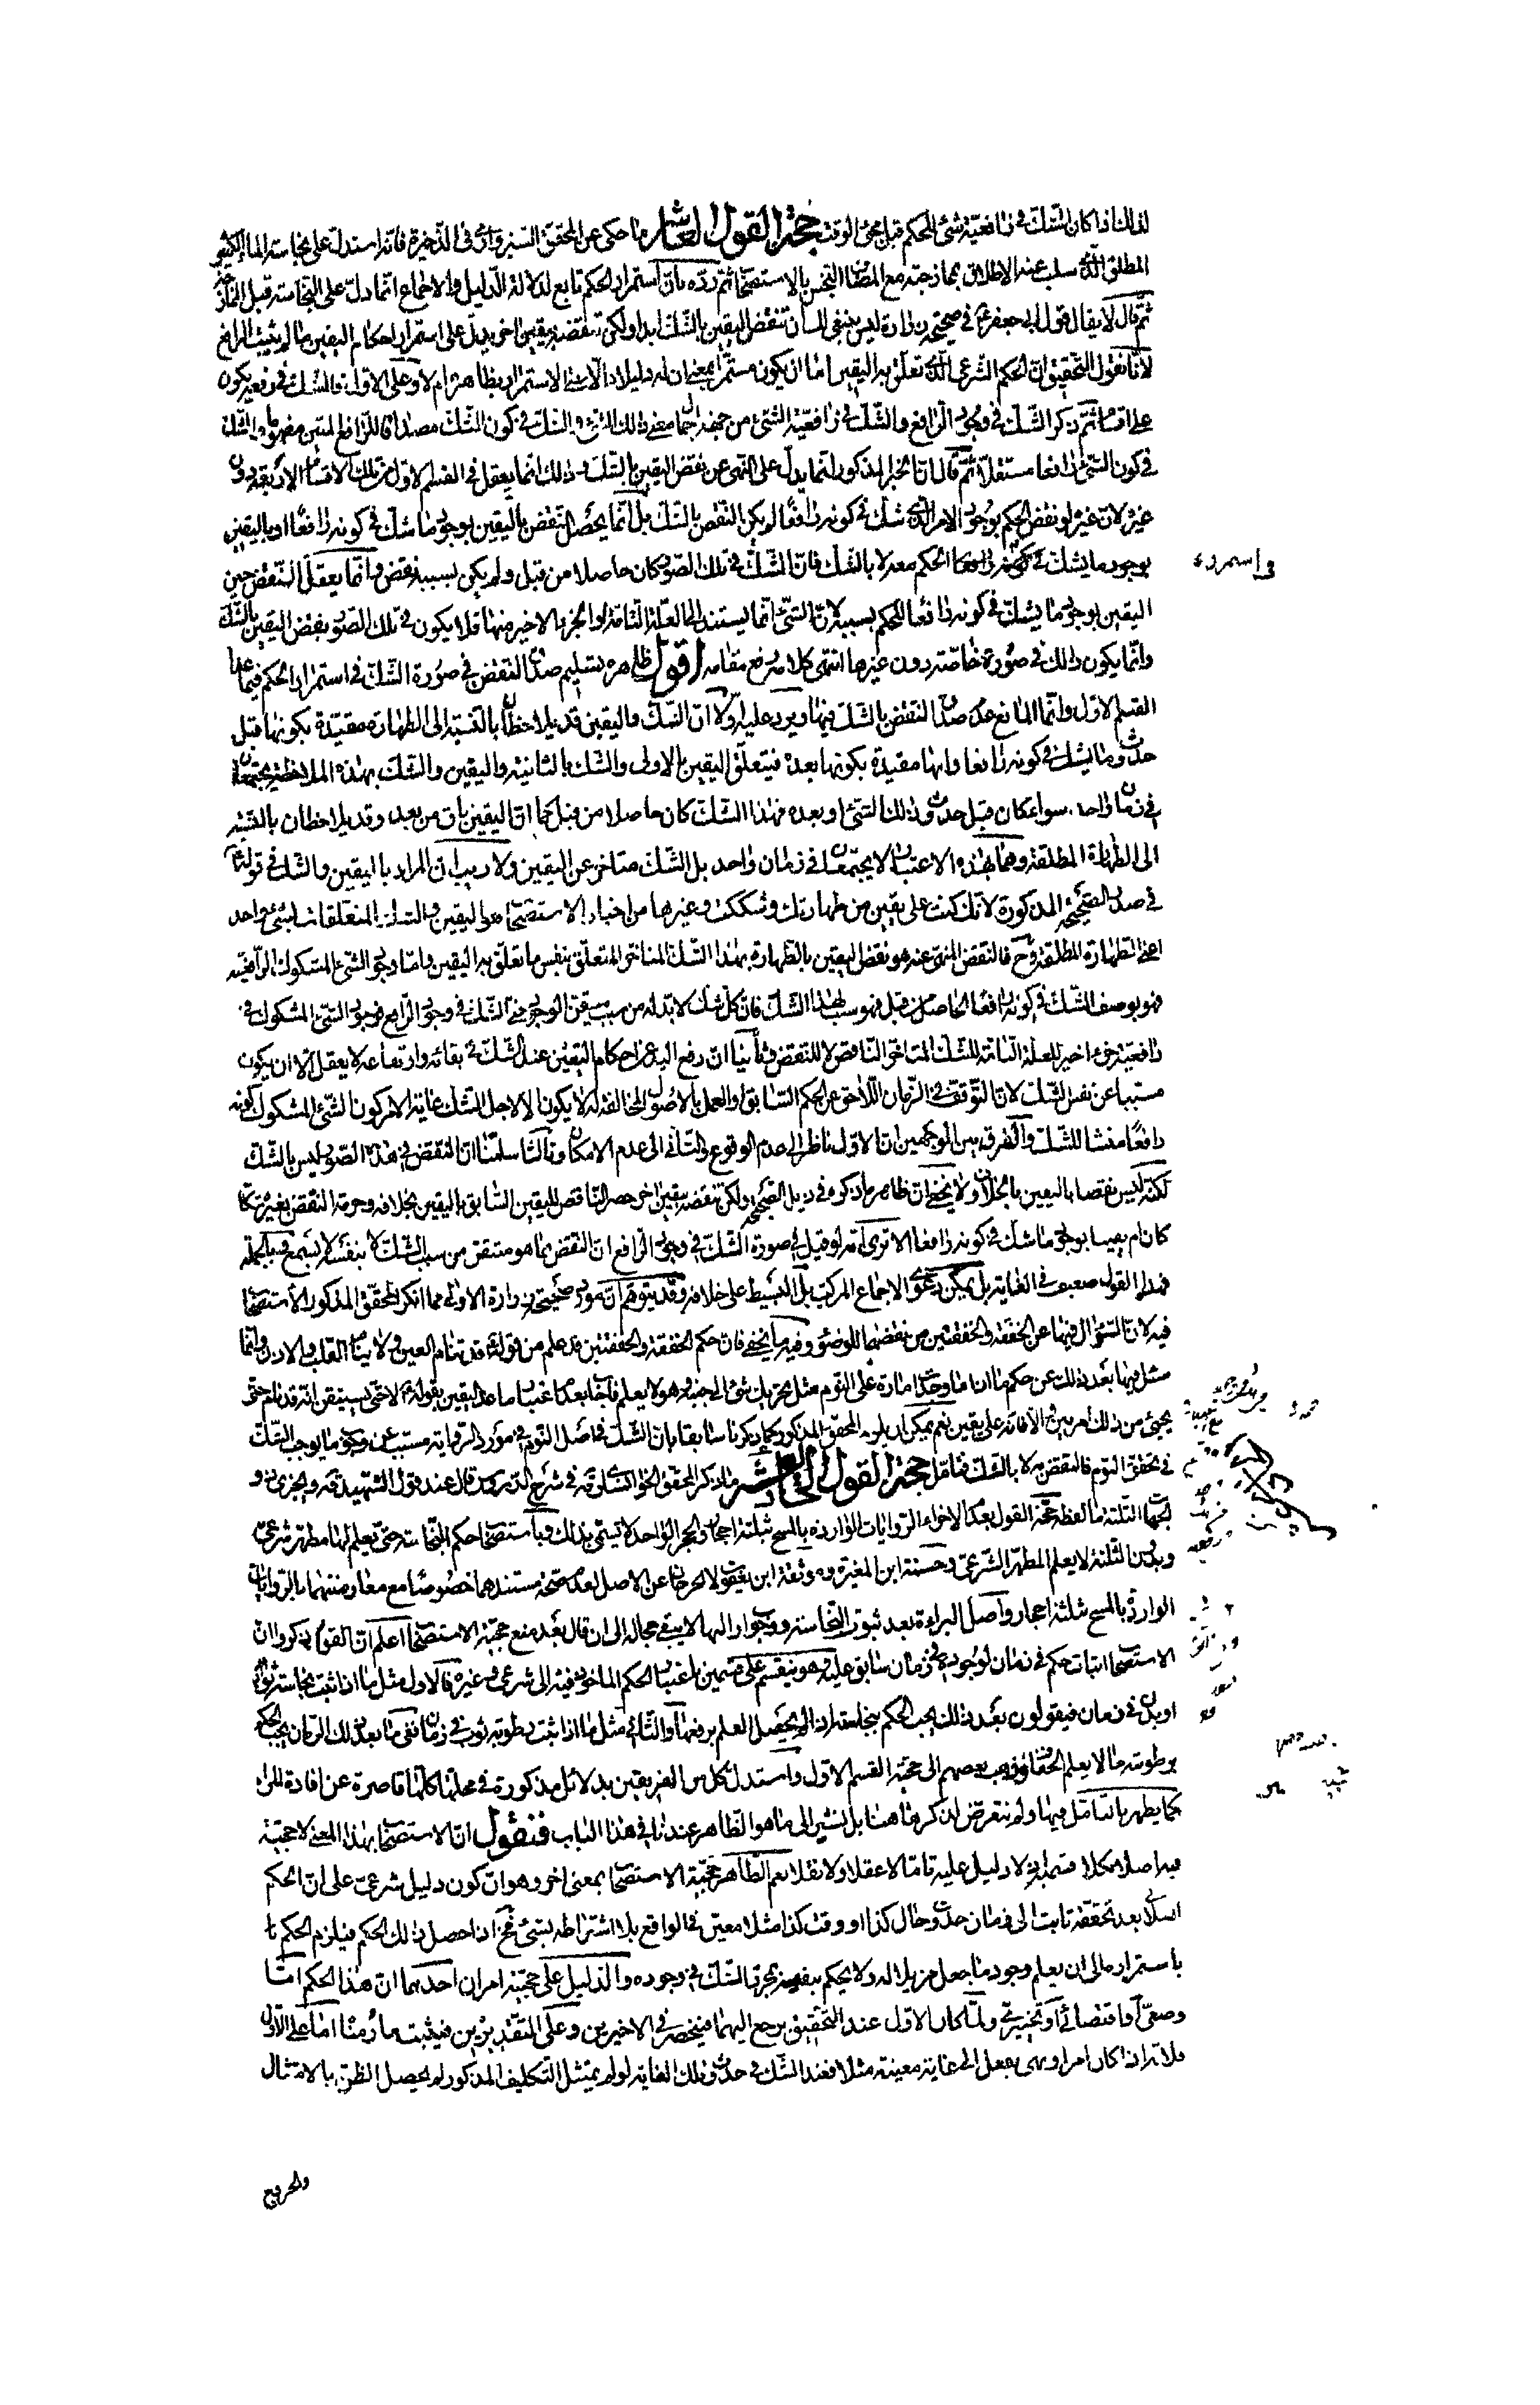 لذلك اذا كان الشك في رافعية شئ للحكم قبل مجئ الوقت حجة القول العاشر ما حكى عن المحقق السبزواري في الذخيرة فانه استدل على نجاسة الماء الكثير
المطلق الذي سلب عنه الاطلاق بممازجته مع المضاف النجس بالاستصحاب ثم رده بان استمرار الحكم تابع لدلالة الدليل والاجماع انما دل على النجاسة قبل الممازجة
ثم قال لا يقال قول ابي جعفر ع في صحيحة زرارة ليس ينبغي لك ان تنقض اليقين بالشك ابدا ولكن تنقضه بيقين اخر يدل على استمرار احكام اليقين ما لم يثبت الرافع
لانا نقول التحقيق ان الحكم الشرعي الذي تعلق به اليقين اما ان يكون مستمرا بمعنى ان له دليلا دالا على الاستمرار بظاهره ام لا وعلى الاول فالشك في رفعه يكون
على اقسام ثم ذكر الشك في وجود الرافع والشك في رافعية الشئ من جهة اجمال معنى ذلك الشئ والشك في كون الشئ مصداقا للرافع المبين مفهوما والشك
في كون الشئ رافعا مستقلا ثم قال ان الخبر المذكور انما يدل على النهي عن نقض اليقين بالشك وذلك انما يعقل في القسم الاول من تلك الاقسام الاربعة دون
غيره لان غيره لو نقض الحكم بوجود الامر الذي شك في كونه رافعا لم يكن النقض بالشك بل انما يحصل النقض باليقين بوجود ما شك في كونه رافعا او باليقين
بوجود ما يشك في كون استمرار الحكم معه لا بالشك فان الشك في تلك الصور كان حاصلا من قبل ولم يكن بسببه نقض وانما يعقل النقض حين
اليقين بوجود ما يشك في كونه رافعا للحكم بسببه لان الشئ انما يستند الى العلة التامة او الجزء الاخير منها فلا يكون في تلك الصور نقض اليقين بالشك
وانما يكون ذلك في صورة خاصة دون غيرها انتهى كلامه رفع مقامه اقول ظاهره تسليم صدق النقض في صورة الشك في استمرار الحكم فيما عدا
القسم الاول وانما المانع عدم صدق النقض بالشك فيها ويرد عليه اولا ان الشك واليقين قد يلاحظان بالنسبة الى الطهارة مقيدة بكونها قبل
حدوث ما يشك في كونه رافعا وايها مقيدة بكونها بعده فيتعلق اليقين بالاولى والشك بالثانية واليقين والشك بهذه الملاحظة يجتمعان
في زمان واحد سواء كان قبل حدوث ذلك الشئ او بعده فهذا الشك كان حاصلا من قبل كما ان اليقين باق من بعد وقد يلاحظان بالنسبة
الى الطهارة المطلقة وهما بهذه الاعتبار لا يجتمعان في زمان واحد بل الشك متاخر عن اليقين ولا ريب ان المراد باليقين والشك في قوله ع
في صدر الصحيحة المذكورة لانك كنت على يقين من طهارتك وشككت وغيرها من اخبار الاستصحاب هو اليقين والشك المتعلقان بشئ واحد
اعني الطهارة المطلقة وح فالنقض المنهي عنه هو نقض اليقين بالطهارة بهذا الشك المتاخر المتعلق بنفس ما تعلق به اليقين واما وجود الشئ المشكوك الرافعية
فهو بوصف الشك في كونه رافعا الحاصل من قبل فهو سبب لهذا الشك فان كل شك لا بد له من سبب متيقن الوجود حتى الشك في وجود الرافع فوجود الشئ المشكوك في
رافعيته جزء اخير للعلة التامة للشك المتاخر الناقض لا للنقض وثانيا ان رفع اليد عن احكام اليقين عند الشك في بقائه وارتفاعه لا يعقل الا ان يكون
مسببا عن نفس الشك لان التوقف في الزمان اللاحق عن الحكم السابق او العمل بالاصول المخالفة له لا يكون الا لاجل الشك غاية الامر كون الشئ المشكوك كونه
رافعا منشا للشك والفرق بين الوجهين ان الاول ناظر الى عدم الوقوع والثاني الى عدم الامكان وثالثا سلمنا ان النقض في هذه الصور ليس بالشك
لكنه ليس نقضا باليقين بالخلاف ولا يخفى ان ظاهر ما ذكره في ذيل الصحيحة ولكن تنقضه بيقين اخر حصر الناقض لليقين السابق باليقين بخلافه وحرمة النقض بغيره شكا
كان ام يقينا بوجود ما شك في كونه رافعا الا ترى انه لو قيل في صورة الشك في وجود الرافع ان النقض بما هو متيقن من سبب الشك لا بنفسه لا يسمع وبالجملة
فهذا القول ضعيف في الغاية بل يمكن دعوى الاجماع المركب بل البسيط على خلافه وقد يتوهم ان مورد صحيحة زرارة الاولى مما انكر المحقق المذكور الاستصحاب
فيه لان السؤال فيها عن الخفقة والخفقتين من نقضهما للوضوء وفيه ما يخفى فان حكم الخفقة والخفقتين قد علم من قوله ع قد تنام العين ولا ينام القلب والاذن وانما
سئل فيها بعد ذلك عن حكم ما اذا وجدت امارة على النوم مثل تحريك شئ الى جنبه وهو لا يعلم فاجاب بعدم اعتبار ما عدا اليقين بقوله ع لا حتى يستيقن انه قد نام حتى
يجئ من ذلك امر بين والا فانه على يقين نعم يمكن ان يلزم المحقق المذكور كما ذكرنا سابقا بان الشك في اصل النوم في مورد الرواية مسبب عن وجود ما يوجب الشك
في تحقق النوم فالنقض به لا بالشك فتامل حجة القول الحادي عشر ما ذكره المحقق الخوانساري قده في شرح الدروس قال عند قول الشهيد قده ويجزي ذو
الجهات الثلث ما لفظه حجة القول بعدم الاجزاء الروايات الواردة بالمسح بثلثة احجار والحجر الواحد لا يسمى بذلك وباستصحاب حكم النجاسة حتى يعلم لها مطهر شرعي
وبدون الثلثة لا يعلم المطهر الشرعي وحسنة ابن المغيرة وموثقة ابن يعقوب لا يخرجان عن الاصل لعدم صحة مستندهما خصوصا مع معارضتهما بالروايات
الواردة بالمسح بثلثة احجار واصل البراءة بعد ثبوت النجاسة ووجوب ازالتها لا يبقى مجاله الى ان قال بعد منع حجية الاستصحاب اعلم ان القوم ذكروا ان
الاستصحاب اثبات حكم في زمان لوجوده في زمان سابق عليه وهو ينقسم على قسمين باعتبار الحكم الماخوذ فيه الى شرعي وغيره فالاول مثل ما اذا ثبت نجاسة ثوب
او بدن في زمان فيقولون بعد ذلك يجب الحكم بنجاسته اذا لم يحصل العلم برفعها والثاني مثل ما اذا ثبت رطوبة ثوب في زمان ففي ما بعد ذلك الزمان يجب الحكم
برطوبته ما لا يعلم الجفاف وذهب بعضهم الى حجية القسم الاول واستدل كل من الفريقين بدلائل مذكورة في محلها كلها قاصرة عن افادة المرام
كما يظهر بالتامل فيها ولم نتعرض لذكرها هنا بل نشير الى ما هو الظاهر عندنا في هذا الباب فنقول ان الاستصحاب بهذا المعنى لا حجية
فيه اصلا بكلا قسميه اذ لا دليل عليه تاما لا عقلا ولا نقلا نعم الظاهر حجية الاستصحاب بمعنى اخر وهو ان يكون دليل شرعي على ان الحكم
الفلاني بعد تحققه ثابت الى زمان حدوث حال كذا او وقت كذا مثلا معين في الواقع بلا اشتراطه بشئ فح اذا حصل ذلك الحكم فيلزم الحكم با
باستمراره الى ان يعلم وجود ما جعل مزيلا له ولا يحكم بنفيه بمجرد الشك في وجوده والدليل على حجيته امران احدهما ان هذا الحكم اما
وضعي او اقتضائي او تخييري ولما كان الاول عند التحقيق يرجع اليهما فينحصر في الاخيرين وعلى التقديرين فيثبت ما رمنا اما على الاول
فلانه اذا كان امرا ونهي بفعل الى غاية معينة مثلا فعند الشك في حدوث تلك الغاية لو لم يمتثل التكليف المذكور لم يحصل الظن بالامتثال
والخروج